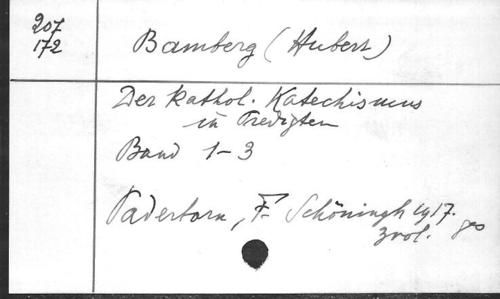 207
172
Bamberg (Hubert)
Der kathol. Katechismus
in Predigten
Band 1-3
Paderborn, F. Schöningh 1917.
3 vol. 8o